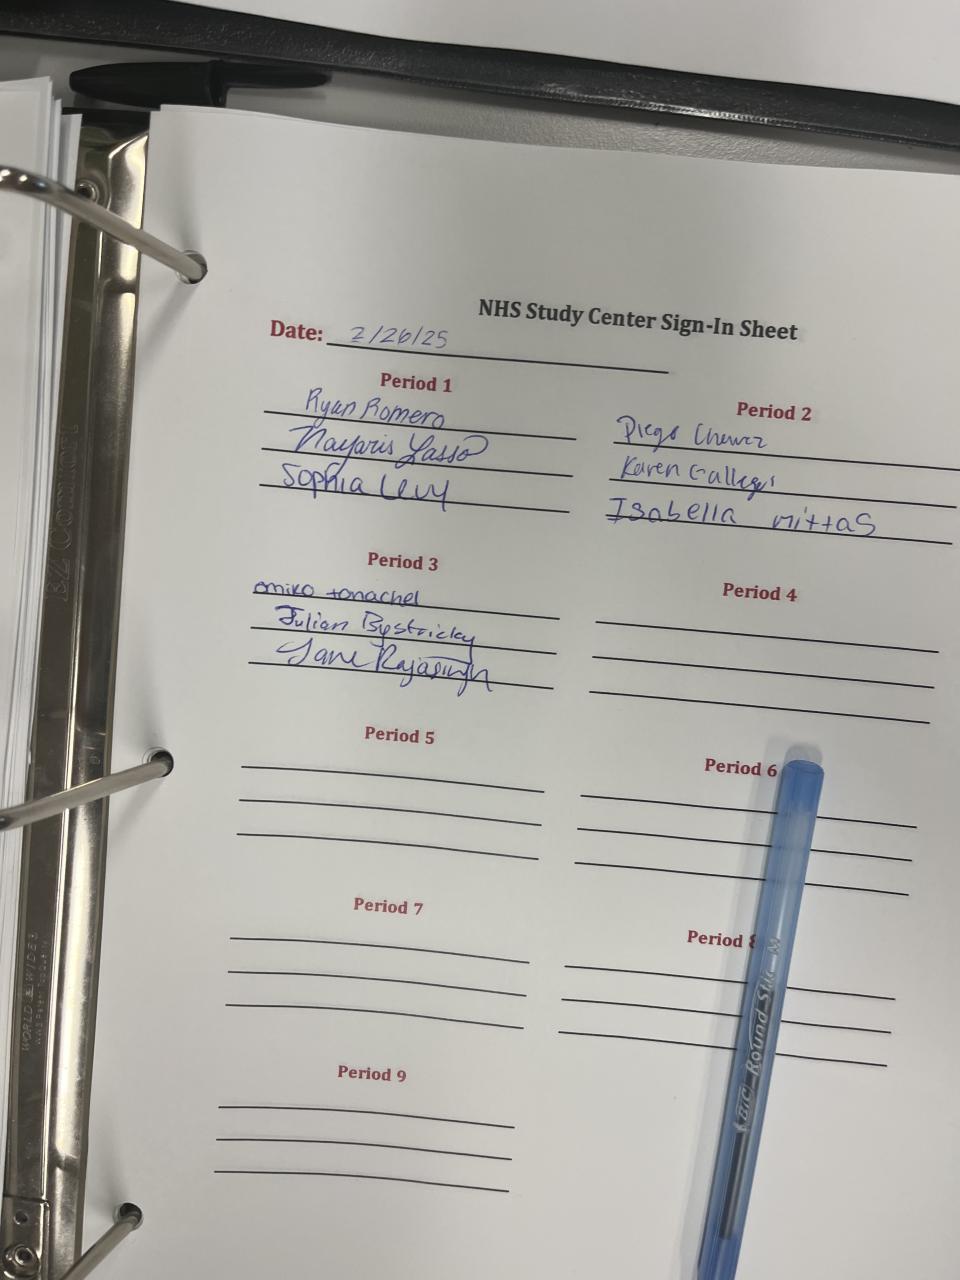 NHS Study Center Sign-In Sheet
Date: 2/26/25
Period 1
Ryan Romero
Nayaris Lasso
Sophia Levy
Period 2
Diego
Karen Gallegos
Isabella mittas
Period 3
omiko tonachel
Julian Bystricky
Rajasingh
Period 4
Period 5
Period 6
Period 7
Period 8
Period 9
BIC Round Stic M
WORLD & WIDE